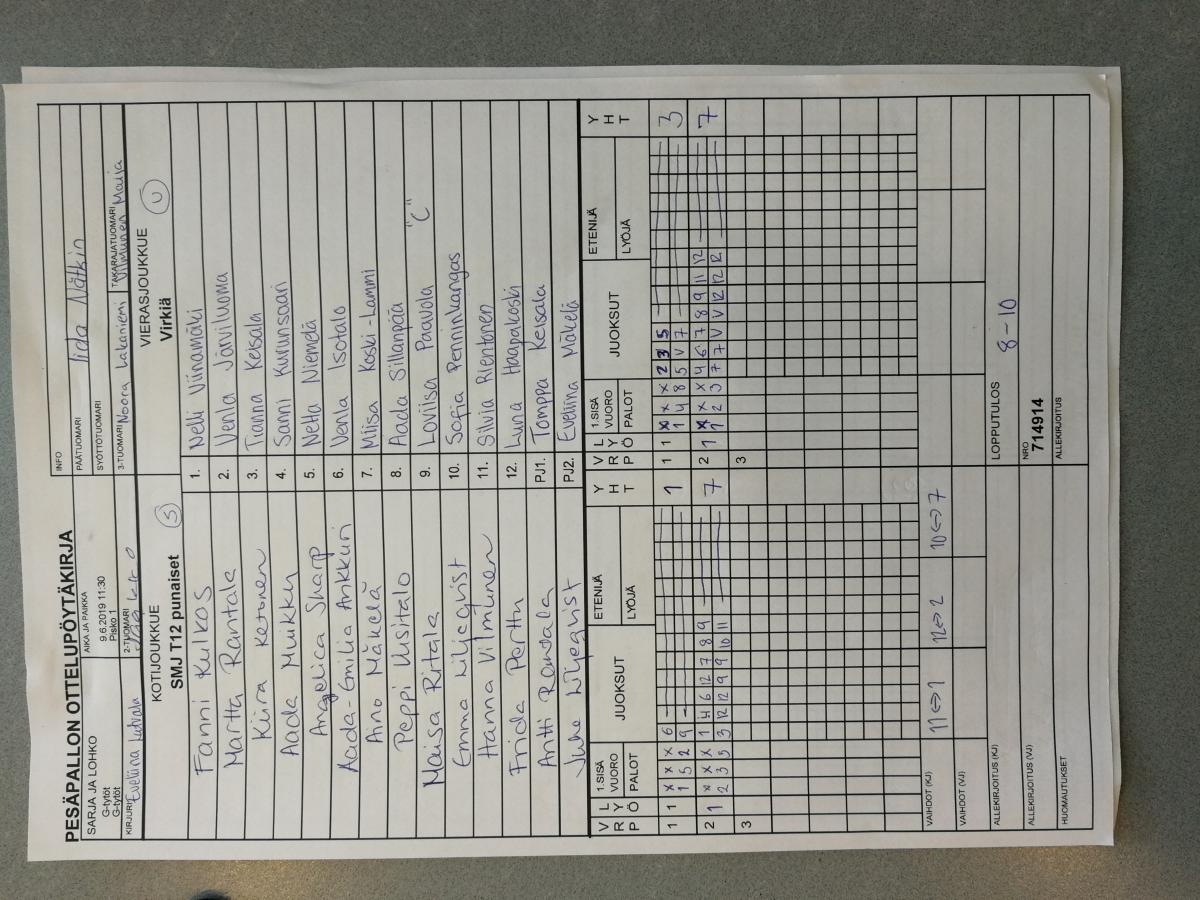 PESÄPALLON OTTELUPÖYTÄKIRJA
SARJA JA LOHKO
G-tytöt
G-tytöt
AIKA JA PAIKKA
9.6.2019 11:30
Pisko 1
INFO
PÄÄTUOMARI Iida Nätkin
SYÖTTÖTUOMARI
KIRJURI Eveliina
2-TUOMARI
3-TUOMARI Noora Lakaniemi
TAKARAJATUOMARI Vilmunen Maija
KOTIJOUKKUE
SMJ T12 punaiset
S
VIERASJOUKKUE
Virkiä
U
Fanni Kulkos 1. Nelli Viinamäki
Martta Rantala 2. Venla Järviluoma
Kiira Ketonen 3. Tianna Keisala
Aada Muikku 4. Sanni Kurunsaari
Angelica Sharp 5. Netta Niemelä
Aada-Emilia Ankkuri 6. Venla Isotalo
Aino Mäkelä 7. Miisa Koski-Lammi
Peppi Uusitalo 8. Aada Sillanpää
Maisa Riitala 9. Loviisa Paavola "C"
Emma Liljeqvist 10. Sofia Penninkangas
Hanna Vilmunen 11. Silvia Rientonen
Frida Perttu 12. Luna Haapakoski
Antti PJ1. Tomppa Keisala
Juha Liljeqvist PJ2. Eveliina Mäkelä
V R P L Y Ö 1.SISÄ VUORO PALOT JUOKSUT ETENIJÄ LYÖJÄ Y H T V R P L Y Ö 1.SISÄ VUORO PALOT JUOKSUT ETENIJÄ LYÖJÄ Y H T
1 1 x x x 6 1 1 1 x x x 2 3 5 3
1 5 2 9 1 4 8 5 V 7
2 1 x x x 1 4 6 12 7 8 9 7 2 1 x x x 4 6 7 8 9 11 12 7
2 3 5 3 12 12 9 9 10 11 1 2 3 7 7 V V 12 12 12
3 3
VAIHDOT (KJ) 11<->1 12<->2 10<->7
VAIHDOT (VJ)
ALLEKIRJOITUS (KJ)
LOPPUTULOS 8-10
ALLEKIRJOITUS (VJ)
NRO
714914
HUOMAUTUKSET
ALLEKIRJOITUS